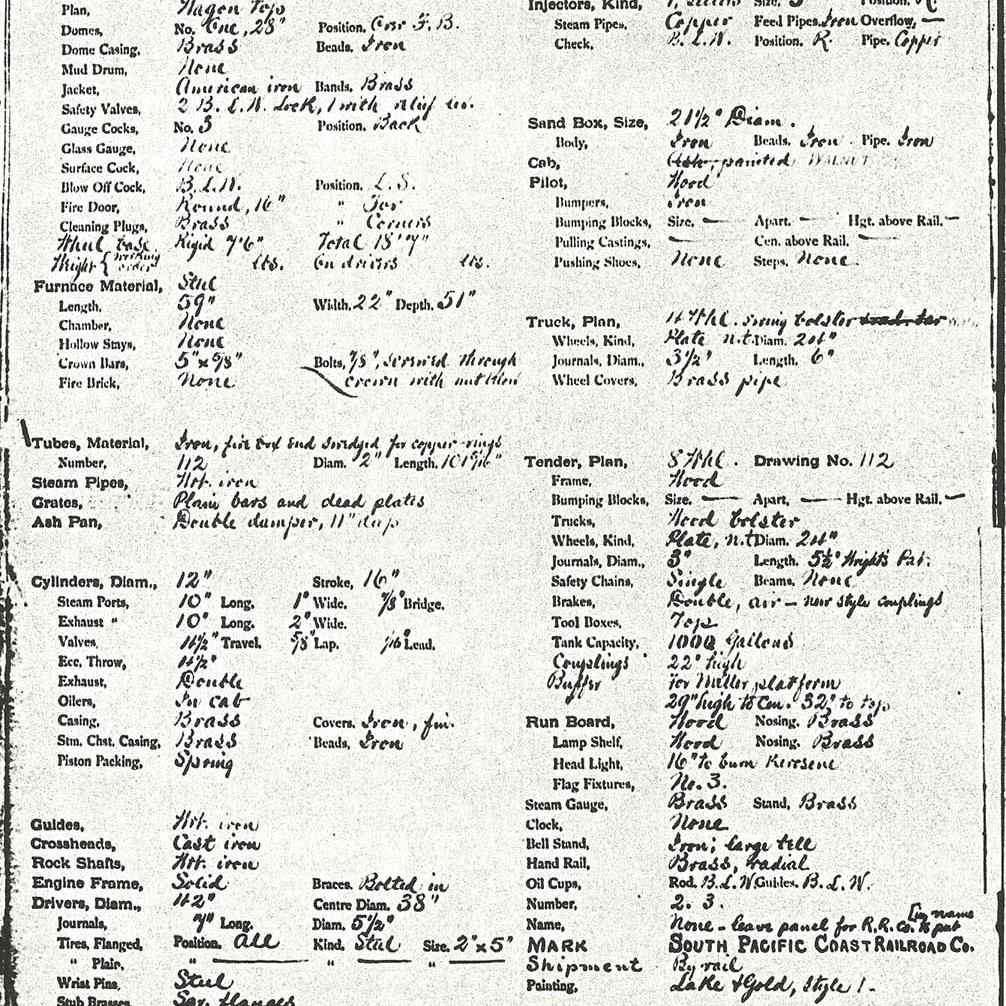 Plan, Wagon Top
Domes, No. One, 28" Position. Over F. B.
Dome Casing, Brass Beads. Iron
Mud Drum, None
Jacket, American iron Bands. Brass
Safety Valves, 2 B. L. W. Lock, 1 with relief
Gauge Cocks, No. 3 Position. Back
Glass Gauge, None
Surface Cock, None
Blow Off Cock, B. L. W. Position. L. S.
Fire Door, Round, 16" " For
Cleaning Plugs, Brass " Corners
Wheel base Rigid 7'6" Total 18'7"
Weight { working order lbs. On drivers lbs.
Furnace Material, Steel
Length, 59" Width. 22" Depth. 51"
Chamber, None
Hollow Stays, None
Crown Bars, 5" x 5/8" Bolts, 7/8", screwed through
crown with nut
Fire Brick, None
Tubes, Material, Iron, fire box end swedged for copper rings
Number, 112 Diam. 2" Length. 101 5/16"
Steam Pipes, Wrt. iron
Grates, Plain bars and dead plates
Ash Pan, Double damper, 11" deep
Cylinders, Diam., 12" Stroke, 16"
Steam Ports, 10" Long. 1" Wide. 7/8" Bridge.
Exhaust " 10" Long. 2" Wide.
Valves, 4 1/2" Travel. 5/8" Lap. 1/16" Lead.
Ecc. Throw, 4 1/2"
Exhaust, Double
Oilers, In cab
Casing, Brass Covers. Iron, fin.
Stm. Chst. Casing, Brass Beads, Iron
Piston Packing, Spring
Guides, Wrt. iron
Crossheads, Cast iron
Rock Shafts, Wrt. iron
Engine Frame, Solid Braces. Bolted in
Drivers, Diam., 42" Centre Diam. 38"
Journals, 7" Long. Diam. 5 1/2"
Tires, Flanged, Position. All Kind. Steel Size. 2" x 5"
" Plain, " — " — " —
Wrist Pins, Steel
Stub Brasses, Sqr. flanges
Injectors, Kind, Size. Position. R.
Steam Pipes, Copper Feed Pipes. Iron Overflow, —
Check, B. L. W. Position. R. Pipe. Copper
Sand Box, Size, 21 1/2" Diam.
Body, Iron Beads. Iron Pipe. Iron
Cab, Ash, painted WALNUT
Pilot, Wood
Bumpers, Iron
Bumping Blocks, Size. — Apart. — Hgt. above Rail. —
Pulling Castings, — Cen. above Rail. —
Pushing Shoes, None Steps. None.
Truck, Plan, 4 Whl. swing bolster
Wheels, Kind, Plate n.t. Diam. 24"
Journals, Diam., 3 1/2" Length. 6"
Wheel Covers, Brass pipe
Tender, Plan, 8 Whl. Drawing No. 112
Frame, Wood
Bumping Blocks, Size. — Apart, — Hgt. above Rail. —
Trucks, Wood bolster
Wheels, Kind, Plate, n.t. Diam. 24"
Journals, Diam., 3" Length. 5 1/2" Wright's Pat.
Safety Chains, Single Beams. None
Brakes, Double, air — new style couplings
Tool Boxes, Top
Tank Capacity, 1000 Gallons
Couplings 22" high
Buffer for Miller platform
29" high to Cen. 32" to top
Run Board, Wood Nosing. Brass
Lamp Shelf, Wood Nosing. Brass
Head Light, 16" to burn Kerosene
Flag Fixtures, No. 3.
Steam Gauge, Brass Stand, Brass
Clock, None
Bell Stand, Iron; large bell
Hand Rail, Brass, radial
Oil Cups, Rod. B. L. W. Guides. B. L. W.
Number, 2. 3.
Name, None - leave panel for R.R. Co. to put name
MARK SOUTH PACIFIC COAST RAILROAD CO.
Shipment By rail
Painting, Lake & Gold, Style 1.